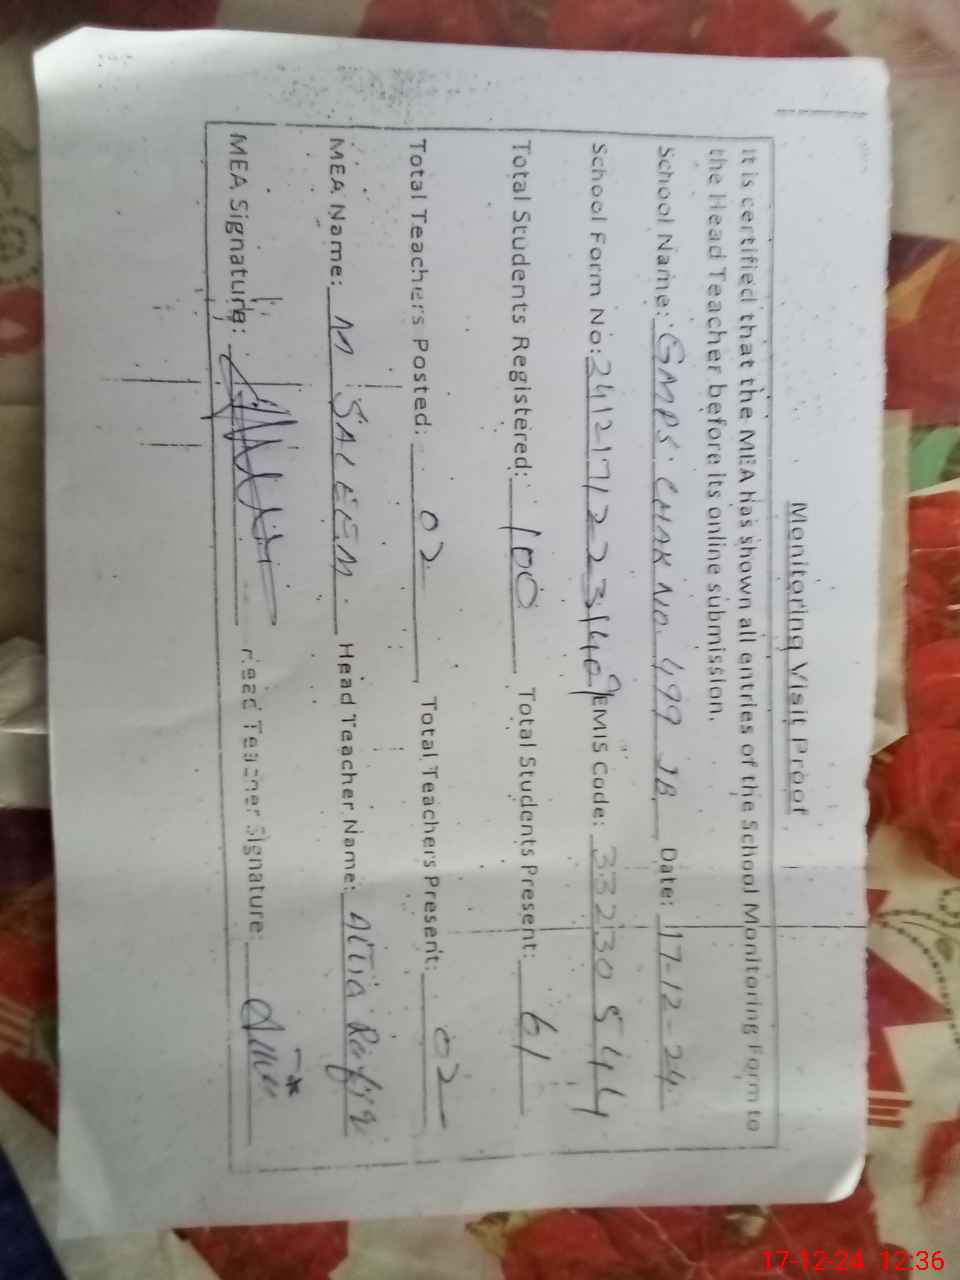 Monitoring Visit Proof
It is certified that the MEA has shown all entries of the School Monitoring Form to
the Head Teacher before its online submission.
School Name: GMPS CHAK NO. 499 JB Date: 17-12-24
School Form No: EMIS Code: 33230544
Total Students Registered: 100 Total Students Present: 61
Total Teachers Posted: 02 Total Teachers Present: 02
MEA Name: M SALEEM. Head Teacher Name:
MEA Signature: Head Teacher Signature:
17-12-24 12:36